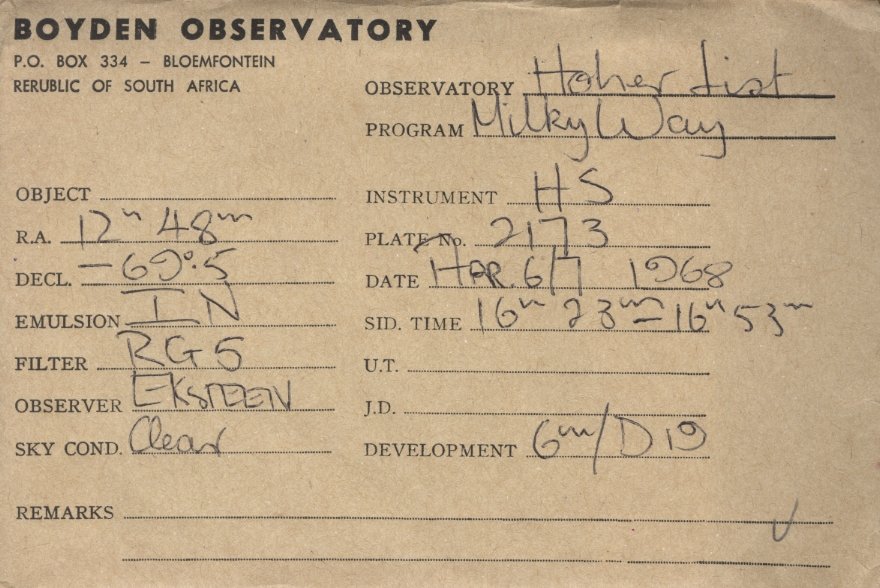 BOYDEN OBSERVATORY
P.O. BOX 334 – BLOEMFONTEIN
RERUBLIC OF SOUTH AFRICA
OBSERVATORY Hoher List
PROGRAM Milky Way
OBJECT
R.A. 12h 48m
DECL. -69°.5
EMULSION IN
FILTER RG5
OBSERVER EKSTEEN
SKY COND. Clear
INSTRUMENT HS
PLATE No. 2173
DATE APR. 6/7 1968
SID. TIME 16h 23m – 16h 53m
U.T.
J.D.
DEVELOPMENT 6m/D19
REMARKS